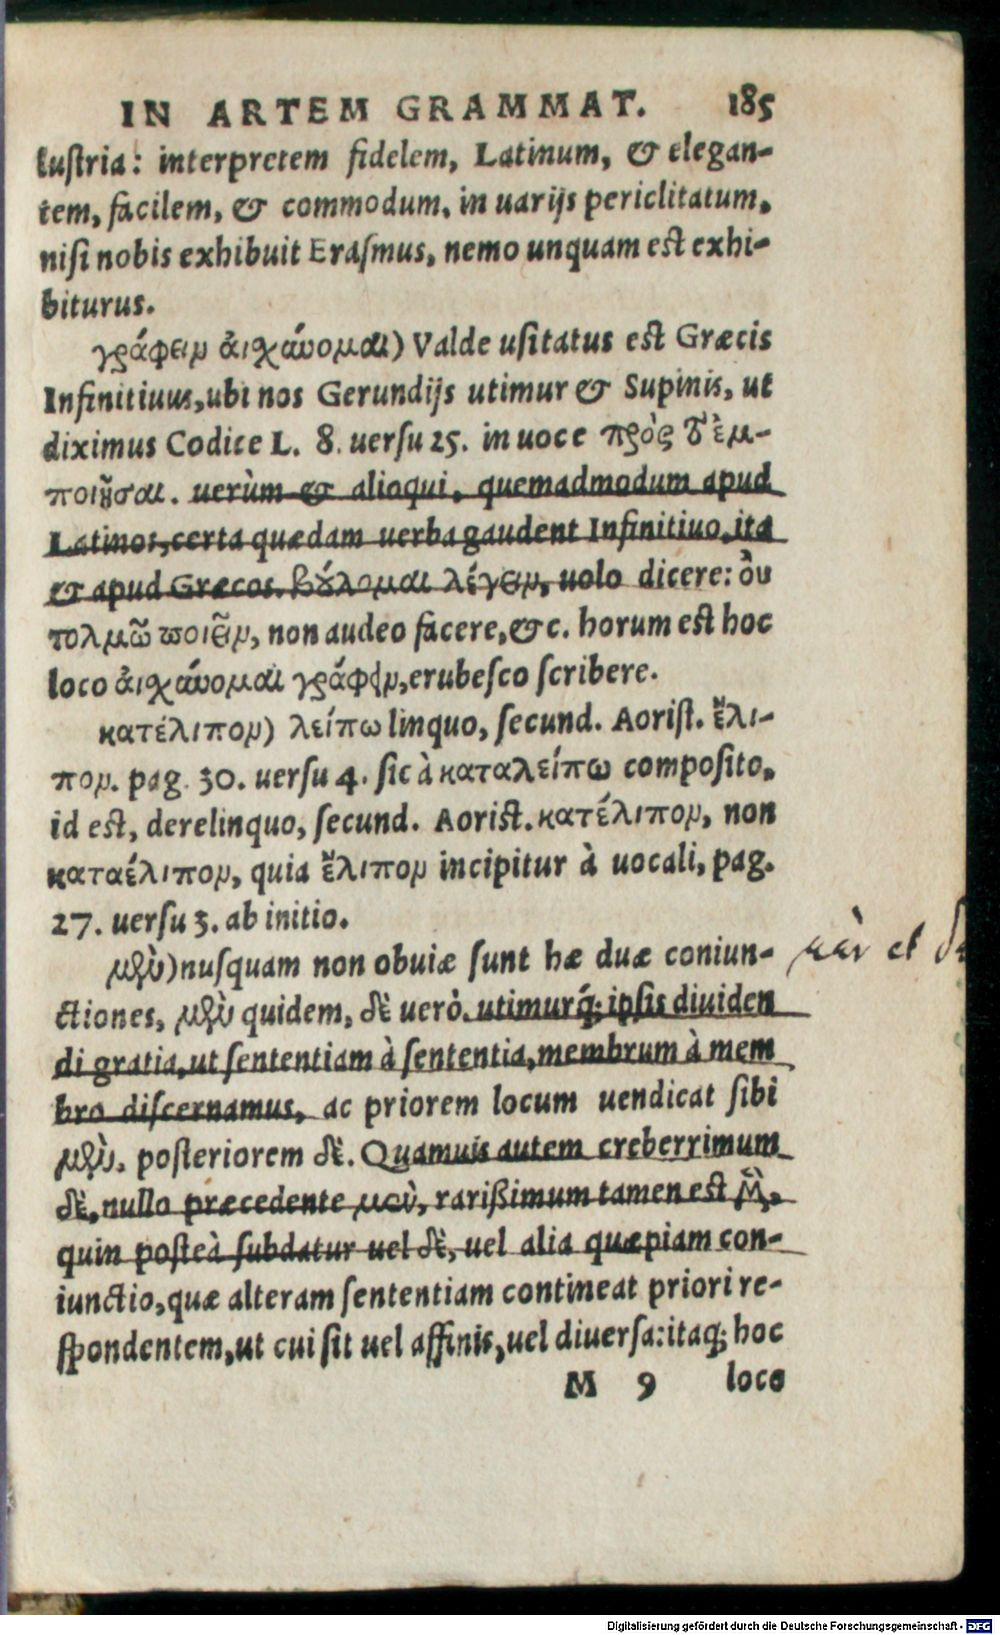 IN ARTEM GRAMMAT. 185
lustria: interpretem fidelem, Latinum, & elegan-
tem, facilem, & commodum, in uarijs periclitatum,
nisi nobis exhibuit Erasmus, nemo unquam est exhi-
biturus.
γράφειν ἀισχύνομαι) Valde usitatus est Græcis
Infinitiuus, ubi nos Gerundijs utimur & Supinis, ut
diximus Codice L. 8. uersu 25. in uoce πρὸς τ' ἐμ-
ποιῆσαι. uerùm & alioqui, quemadmodum apud
Latinos, certa quædam uerba gaudent Infinitiuo, ita
& apud Græcos. βούλομαι λέγειν, uolo dicere: ὀυ
τολμῶ ποιεῖν, non audeo facere, &c. horum est hoc
loco ἀισχύνομαι γράφειν, erubesco scribere.
κατέλιπον) λείπω linquo, secund. Aorist. ἔλι-
πον. pag. 30. uersu 4. sic à καταλείπω composito,
id est, derelinquo, secund. Aorist. κατέλιπον, non
καταέλιπον, quia ἔλιπον incipitur à uocali, pag.
27. uersu 3. ab initio.
μὲν) nusquam non obuiæ sunt hæ duæ coniun-
ctiones, μὲν quidem, δὲ uerò. utimurq́; ipsis diuiden
di gratia, ut sententiam à sententia, membrum à mem
bro discernamus, ac priorem locum uendicat sibi
μὲν, posteriorem δὲ. Quamuis autem creberrimum
δὲ, nullo præcedente μὲν, rarißimum tamen est μὲν,
quin posteà subdatur uel δὲ, uel alia quæpiam con-
iunctio, quæ alteram sententiam contineat priori re-
spondentem, ut cui sit uel affinis, uel diuersa: itaq; hoc
M 9 loco
μὲν et
Digitalisierung gefördert durch die Deutsche Forschungsgemeinschaft - DFG